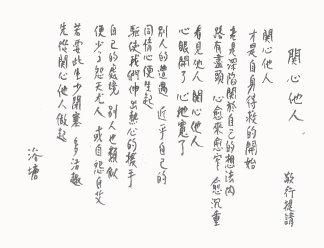 關心他人
敬行提請
關心他人
才是自身得救的開始
竟是深陷關於自己的想法內
路有盡頭 心愈來愈窄 愈沉重
看見他人 關心他人
心眼開了 心地寬了
別人的遭遇 近乎自己的
同情心便生起
驅使我們伸出熱心的援手
自己的處境 別人也類似
便少了怨天尤人 或自怨自艾
若要此生少閉塞 多活趣
先從關心他人做起